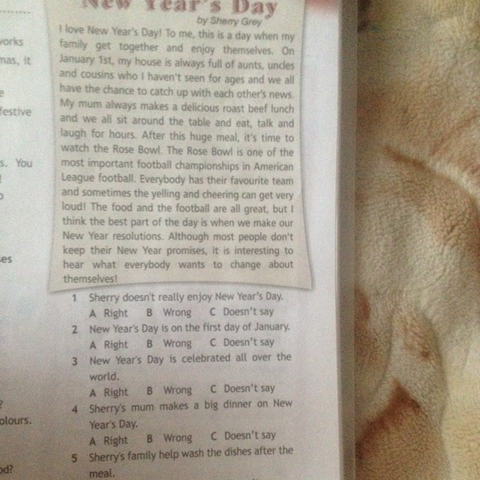 New Year's Day
by Sherry Grey
I love New Year's Day! To me, this is a day when my
family get together and enjoy themselves. On
January 1st, my house is always full of aunts, uncles
and cousins who I haven't seen for ages and we all
have the chance to catch up with each other's news.
My mum always makes a delicious roast beef lunch
and we all sit around the table and eat, talk and
laugh for hours. After this huge meal, it's time to
watch the Rose Bowl. The Rose Bowl is one of the
most important football championships in American
League football. Everybody has their favourite team
and sometimes the yelling and cheering can get very
loud! The food and the football are all great, but I
think the best part of the day is when we make our
New Year resolutions. Although most people don't
keep their New Year promises, it is interesting to
hear what everybody wants to change about
themselves!
1 Sherry doesn't really enjoy New Year's Day.
A Right B Wrong C Doesn't say
2 New Year's Day is on the first day of January.
A Right B Wrong C Doesn't say
3 New Year's Day is celebrated all over the
world.
A Right B Wrong C Doesn't say
4 Sherry's mum makes a big dinner on New
Year's Day.
A Right B Wrong C Doesn't say
5 Sherry's family help wash the dishes after the
meal.